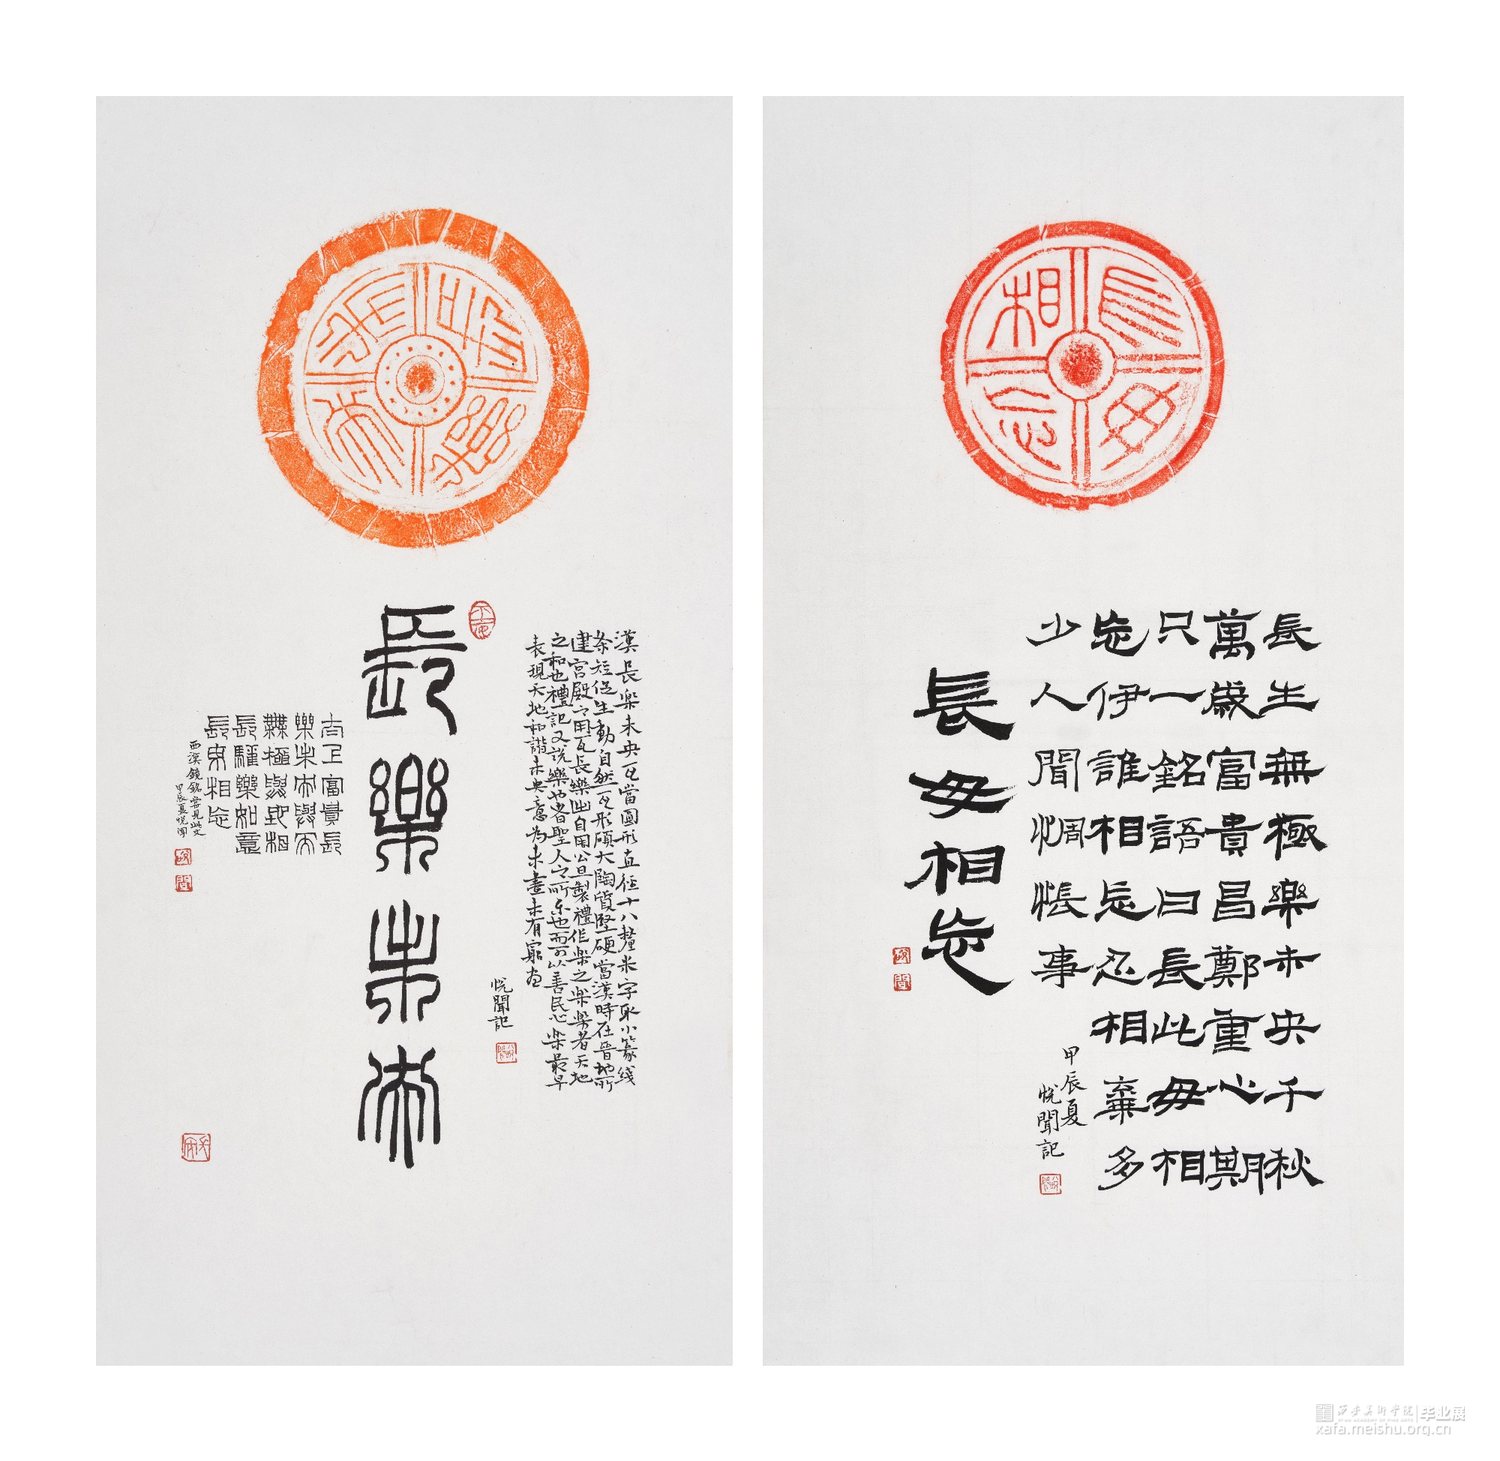 長樂未央
漢長樂未央瓦當圓形直徑十八釐米字取小篆綫
条短促生動自然瓦形碩大陶質堅硬當漢時在晉地所
建宮殿之用瓦長樂出自周公旦製禮作樂之樂樂者天地
之和也禮記又說樂也者聖人之所樂也而可以善民心樂最早
表現天地和諧未央意為未盡未有窮盡
悅聞記
長樂未央
大上富貴長
樂未央與天
無極與地相
長驩樂如意
長毋相忘
西漢鏡銘嘗見此文
甲辰夏悅聞
長毋相忘
長生無極樂未央千秋
萬歲富貴昌鄭重心期
只一銘語曰長此毋相
忘伊誰相忘忍相棄多
少人間惆悵事
甲辰夏
悅聞記
長毋相忘
西安美术学院 毕业展
xafa.meishu.org.cn